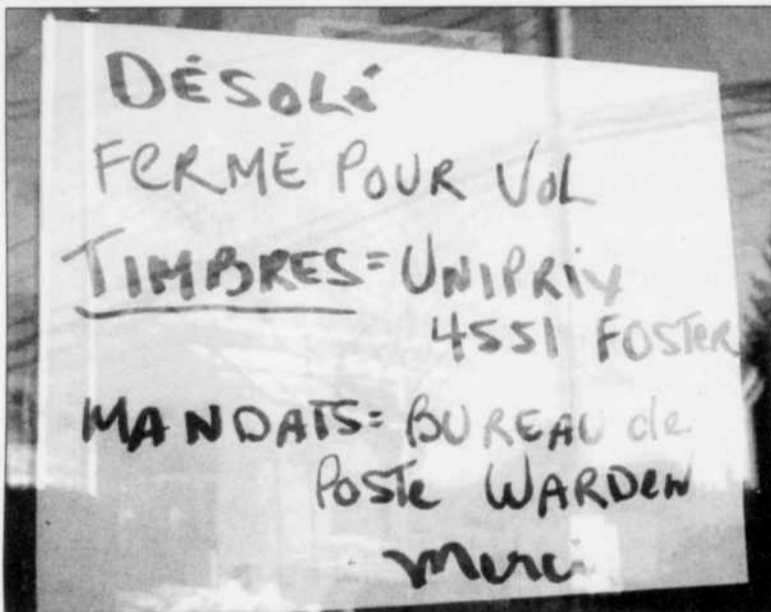 DÉSOLÉ
FERMÉ POUR VOL
TIMBRES = UNIPRIX
4551 FOSTER
MANDATS = BUREAU de
Poste WARDEN
Merci